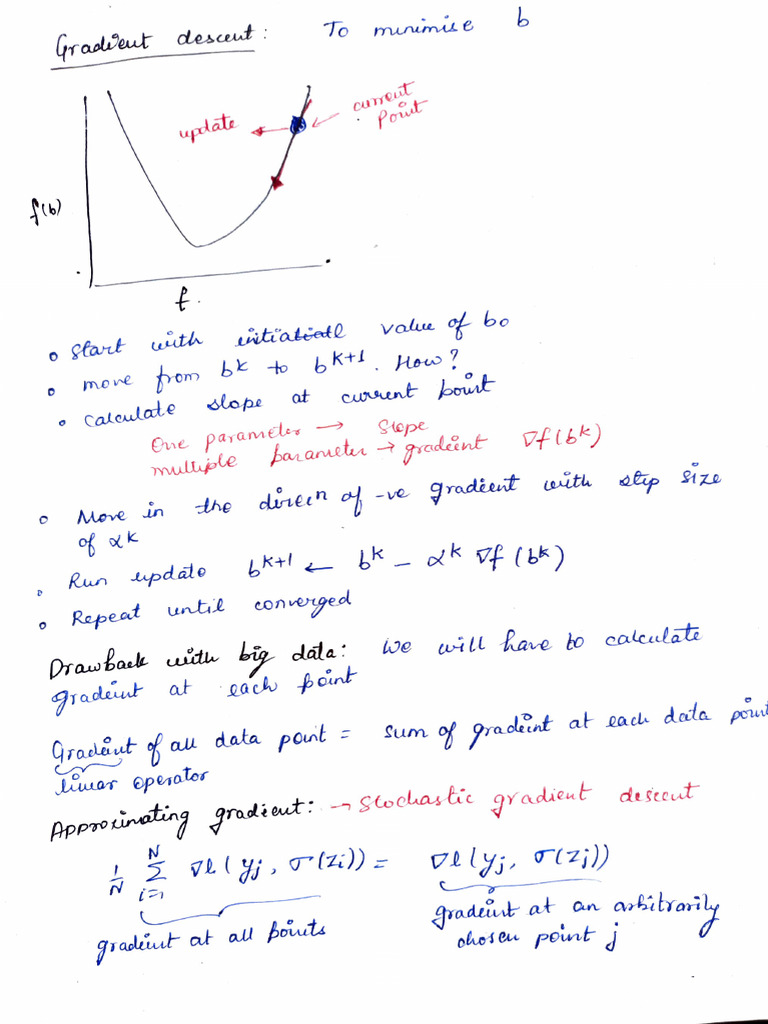 Gradient descent: To minimise b
update
current
point
f(b)
f.
o Start with initial value of b0
o move from b^k to b^{k+1}. How?
o calculate slope at current point
One parameter → slope
multiple parameter → gradient ∇f(b^k)
o Move in the direcn of -ve gradient with step size
of αk
o Run update b^{k+1} ← b^k - α^k ∇f(b^k)
o Repeat until converged
Drawback with big data: We will have to calculate
gradient at each point
Gradient of all data point = sum of gradient at each data point
linear operator
Approximating gradient: → Stochastic gradient descent
1/N Σ_{i=1}^{N} ∇l(yj, σ(zi)) = ∇l(yj, σ(zj))
gradient at all points
gradient at an arbitrarily
chosen point j